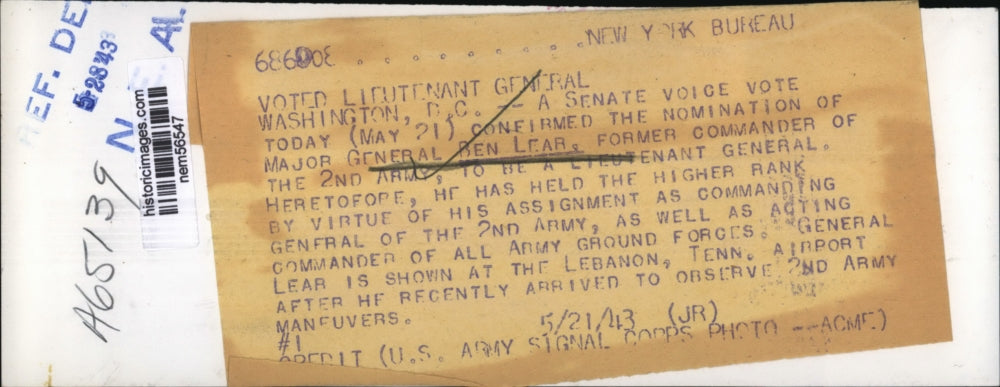 REF. DE
5-28'43
N
AL
A65139
historicimages.com
nem56547
NEW Y RK BUREAU
686908
VOTED LIEUTENANT GENERAL
WASHINGTON, D.C. -- A SENATE VOICE VOTE
TODAY (MAY 21) CONFIRMED THE NOMINATION OF
MAJOR GENERAL BEN LEAR, FORMER COMMANDER OF
THE 2ND ARMY, TO BE A LIEUTENANT GENERAL.
HERETOFORE, HE HAS HELD THE HIGHER RANK
BY VIRTUE OF HIS ASSIGNMENT AS COMMANDING
GENERAL OF THE 2ND ARMY, AS WELL AS ACTING
COMMANDER OF ALL ARMY GROUND FORCES. GENERAL
LEAR IS SHOWN AT THE LEBANON, TENN. AIRPORT
AFTER HE RECENTLY ARRIVED TO OBSERVE 2ND ARMY
MANEUVERS.
#1 5/21/43 (JR)
CREDIT (U.S. ARMY SIGNAL CORPS PHOTO --ACME)